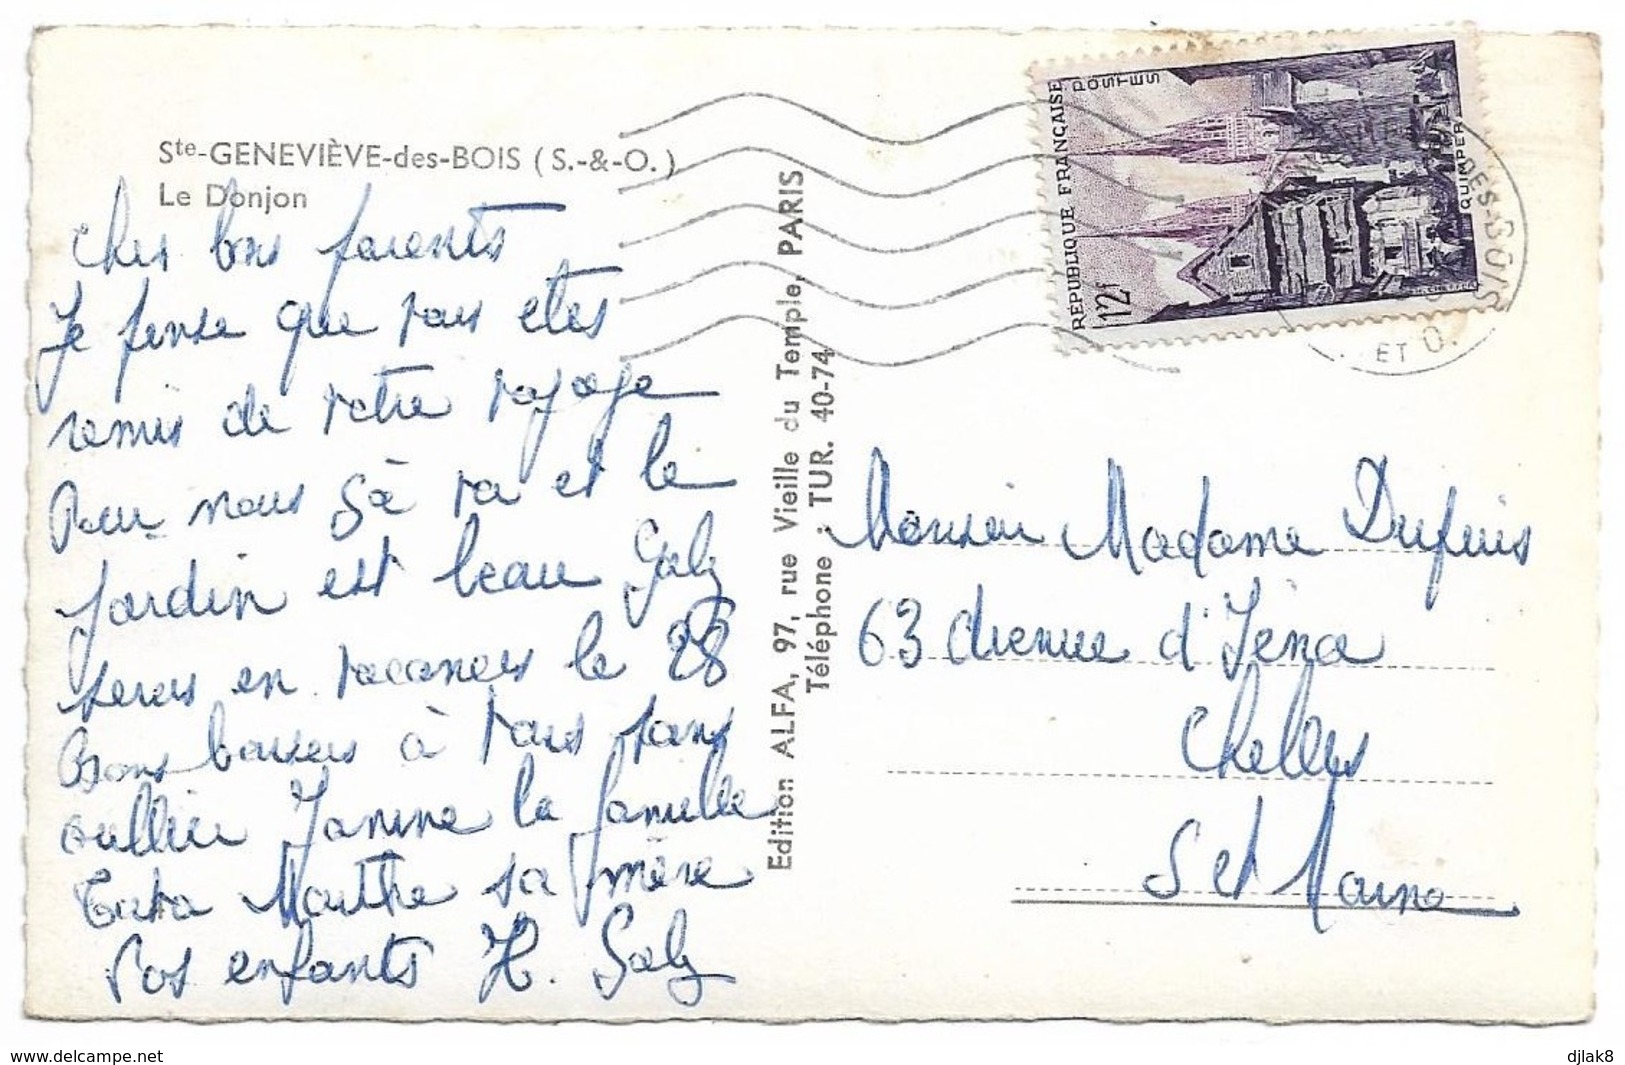 Ste-GENEVIÈVE-des-BOIS (S.-&-O.)
Le Donjon
Chers bons parents
Je pense que vous etes
remis de votre voyage
Pour nous sà va et le
jardin est beau Gaby
seras en vacances le 28
Bons baisers à vous sans
oullier Janine la famille
Tata Marthe sa mère
Vos enfants H. Gaby
Edition ALFA, 97, rue Vieille du Temple, PARIS
Téléphone : TUR. 40-74
REPUBLIQUE FRANÇAISE
POSTES
12F
QUIMPER
DES-BOIS
ET O.
Monsieur Madame Dupuis
63 avenue d'Iéna
Chelles
S et Marne
delcampe.net
djlak8